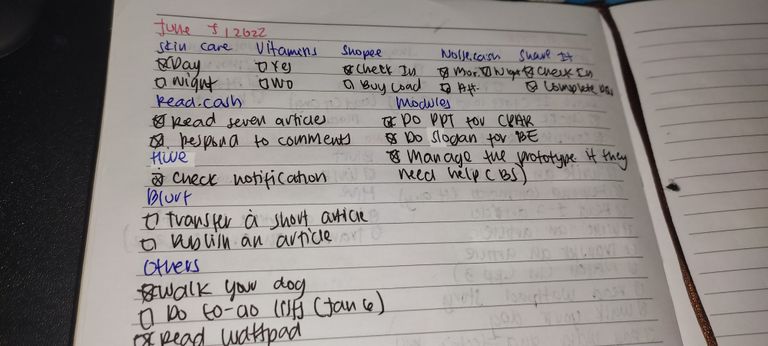 June 5, 2022
Skin care Vitamins Shopee Noise.cash Share It
Day Yes Check In Mor. Night Check In
Night No Buy Load Aft. Complete
Read.cash Modules
Read seven articles Do PPT for CPAR
Respond to comments Do slogan for BE
Hive Manage the prototype if they
Check notification need help (BS)
Blurt
Transfer a short article
Publish an article
Others
Walk your dog
Do to-do lists (Jan 6)
Read wattpad